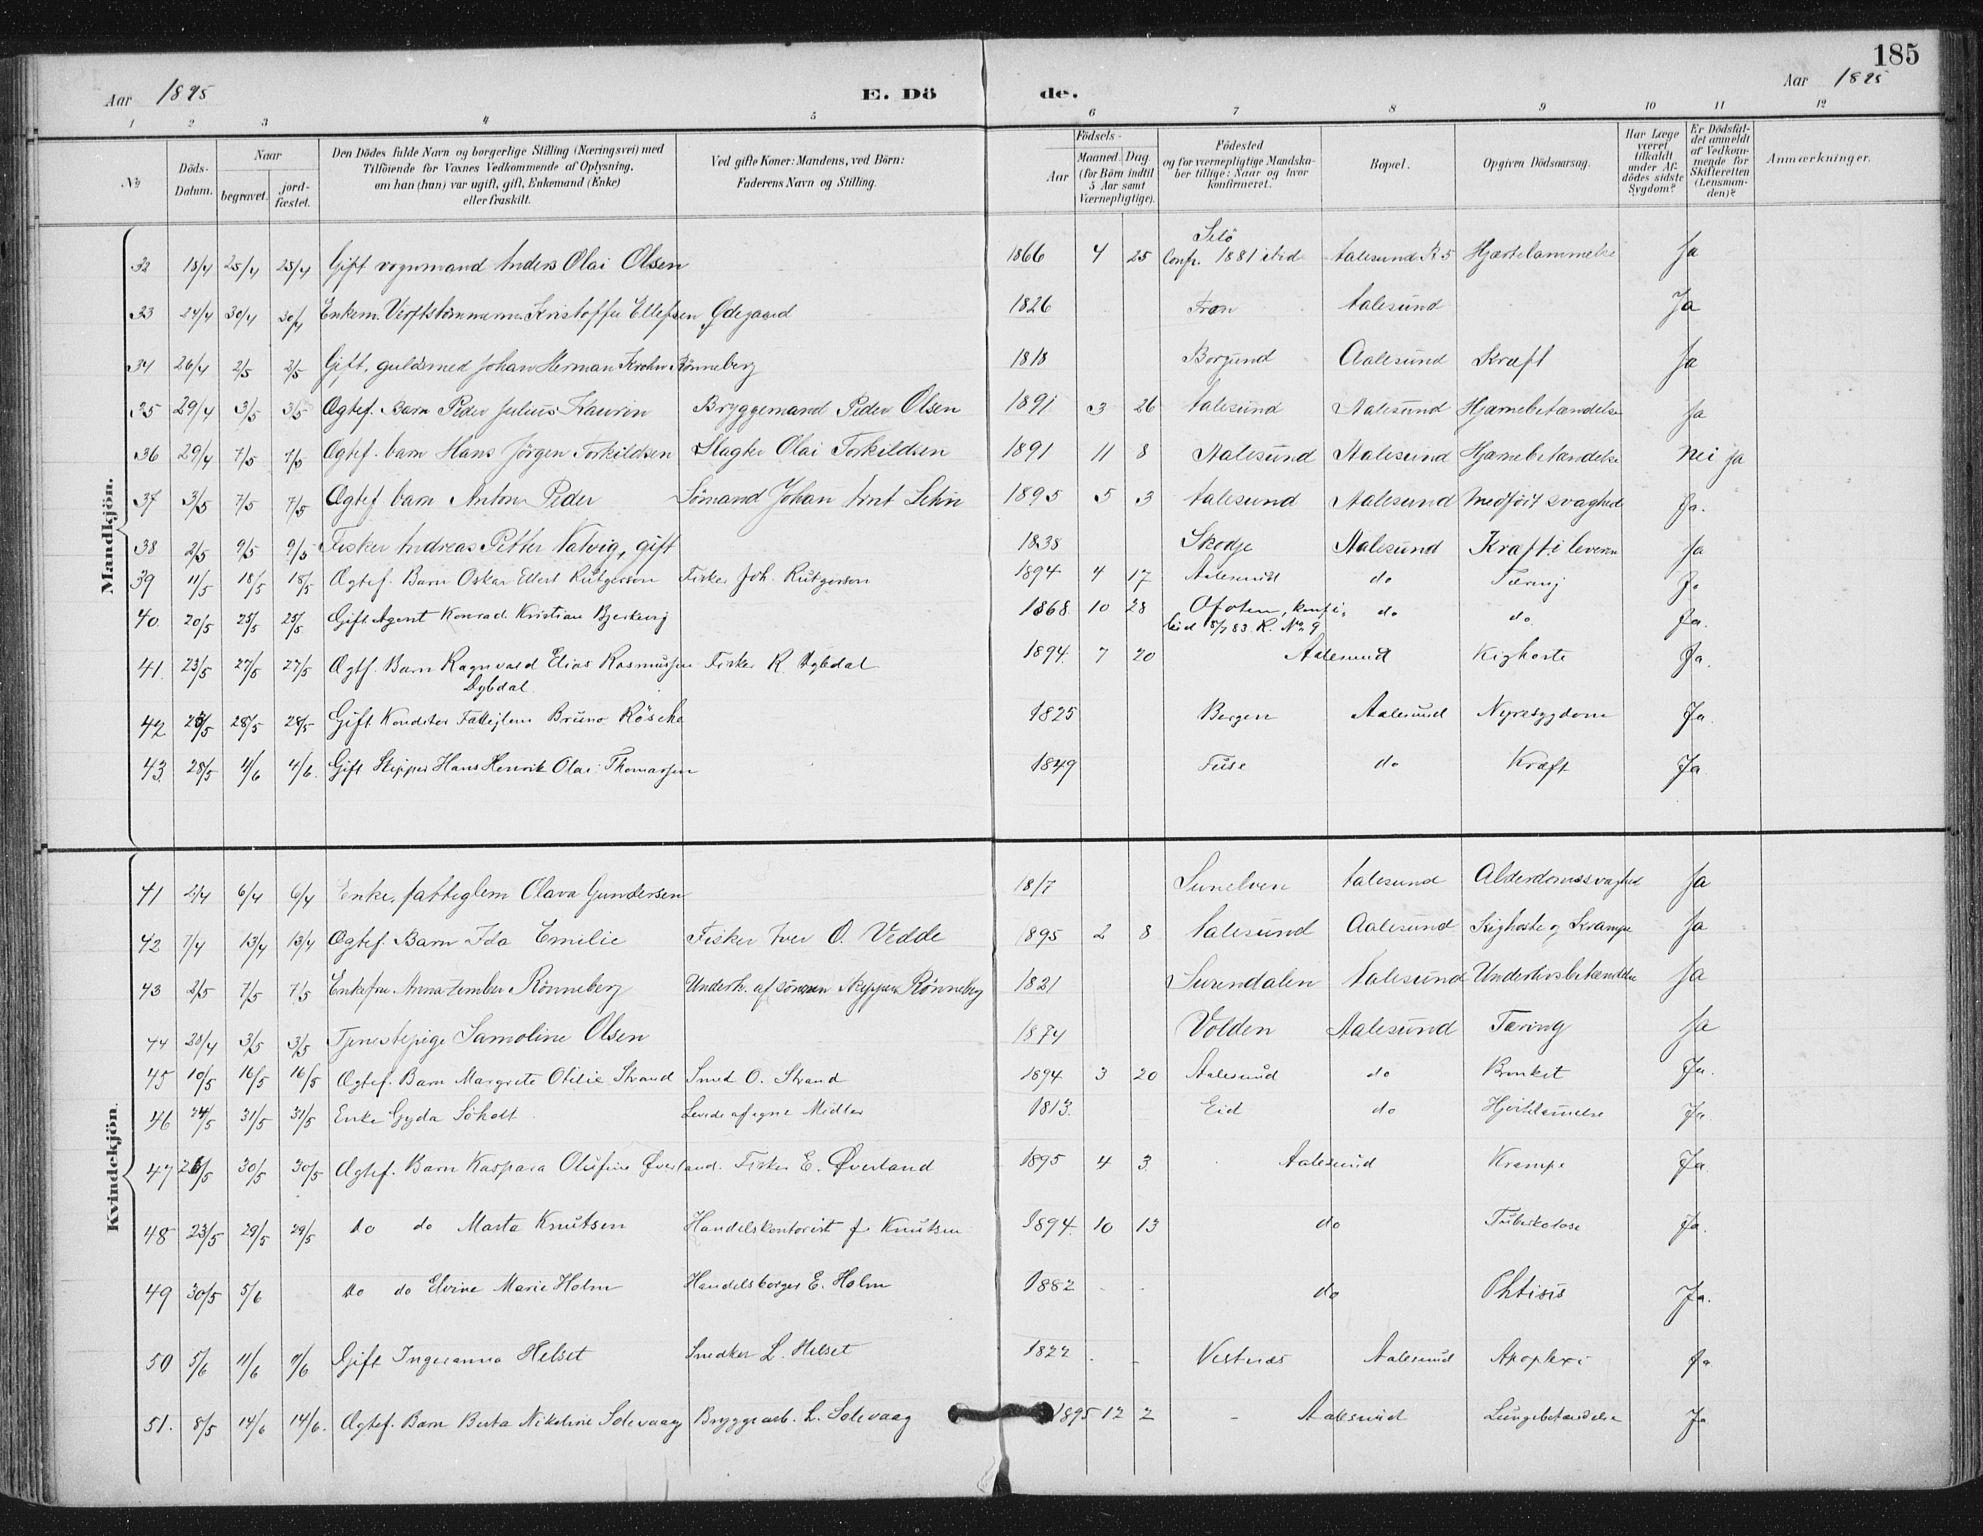 185
Aar 1895 E. Dö de. Aar 1895
1 2 3 4 5 6 7 8 9 10 11 12
№
Döds-Datum.
Naar
begravet.
jord-fæstet.
Den Dödes fulde Navn og borgerlige Stilling (Næringsvei) med
Tilföiende for Voxnes Vedkommende af Oplysning,
om han (hun) var ugift, gift, Enkemand (Enke)
eller fraskilt.
Ved gifte Koner: Mandens, ved Börn:
Faderens Navn og Stilling.
Födsels-
Aar
Maaned. Dag.
(for Börn indtil
5 Aar samt
Værnepligtige).
Födested
og for værnepligtige Mandska-
ber tillige: Naar og hvor
konfirmeret.
Bopæl.
Opgiven Dödsaarsag.
Har Læge
været
tilkaldt
under Af-
dödes sidste
Sygdom?
Er Dödsfal-
det anmeldt
af Vedkom-
mende for
Skifteretten
(Lensman-
den)?
Anmærkninger.
Mandkjön.
32 18/4 25/4 25/4 Gift vognmand Anders Olai Olsen 1866 4 25 Conf. 1881 ibid Aalesund R 5 Hjærtelammelse Ja
33 24/4 30/4 30/4 Enkem. Kristoffer Ellefsen Ødegaard 1826 Fron Aalesund Ja
34 26/4 2/5 2/5 Gift, guldsmed Johan Herman Krohn Rönneberg 1818 Borgund Aalesund Kræft Ja
35 29/4 3/5 3/5 Ægtef. Barn Peder Julius Kaurin Bryggemand Peder Olsen 1891 3 26 Aalesund Aalesund Hjærnebetændelse Ja
36 29/4 7/5 7/5 Ægtef. barn Hans Jörgen Torkildsen Slagter Olai Torkildsen 1891 11 8 Aalesund Aalesund Hjærnebetændelse Nei Ja
37 3/5 7/5 7/5 Ægtef barn Anton Peder Sömand Johan Arnt 1895 5 3 Aalesund Aalesund Medfört svaghed Ja.
38 2/5 9/5 9/5 Fisker Andreas Petter Natvig, gift 1838 Skodje Aalesund Kræft i leveren Ja
39 11/5 18/5 18/5 Ægtef. Barn Oskar Ellert Rutgerson Fisker Joh. Rutgerson 1894 4 17 Aalesund do Tæring Ja
40. 20/5 25/5 25/5 Gift Agent Konrad Kristian Bjerkevig 1868 10 28 Ofoten, konf. i do do Ja.
83. R. № 9
41. 23/5 27/5 27/5 Ægtf. Barn Ragnvald Elias Rasmussen Fisker R Dybdal 1894. 7 20 Aalesund Kighoste Ja.
Dybdal.
42 25/5 28/5 28/5 Gift Konditor Bruno Röscke 1825 Bergen Aalesund Nyresygdom Ja.
43. 28/5 4/6 4/6. Gift Skipper Hans Henrik Olai Thomassen 1849 Fuse do Kræft Ja
Kvindekjön.
41 2/4 6/4 6/4 Enke, fattiglem Olava Gundersen 1817 Sunelven Aalesund Alderdomssvaghed Ja
42 7/4 13/4 13/4 Ægtef. Barn Ida Emilie Fisker Iver O. Vedde 1895 2 8 Aalesund Aalesund Kighoste og Krampe Ja
43 2/5 7/5 7/5 Enkefru Anna Rönneberg Underh. af sönnen Skipper Rönneberg 1821 Surendalen Aalesund Underlivsbetændelse Ja
44 28/4 3/5 3/5 Tjenestepige Samoline Olsen 1874 Volden Aalesund Tæring Ja
45 10/5 16/5 16/5 Ægtef. Barn Margrete Otilie Strand Smed O. Strand 1894 3 20 Aalesund do Bronkit Ja.
46 24/5 31/5 31/5 Enke Gyda Söholt Levede af egne Midler 1813. Eid do Ja.
47 26/5 30/5 30/5 Ægtef. Barn Kaspara Olufine Øverland. Fisker E. Øverland 1895 4 3. Aalesund Krampe Ja.
48 23/5 29/5 29/5 do do Marta Knutsen Handelskontorist J. Knutsen 1894. 10 13 do Tuberkolose Ja.
49 30/5 5/6 do do Elvine Marie Holm Handelsborger E. Holm 1882 do Phtisis Ja.
50 5/6 11/6 11/6 Gift Ingeranna Helset Snedker L. Helset 1822 Vestnæs Aalesund Apoplexi Ja
51. 8/5 14/6 14/6. Ægtef. Barn Berta Nikoline Solevaag Bryggearb. L. Solevaag 1895 12 2 Aalesund Lungebetændelse Ja